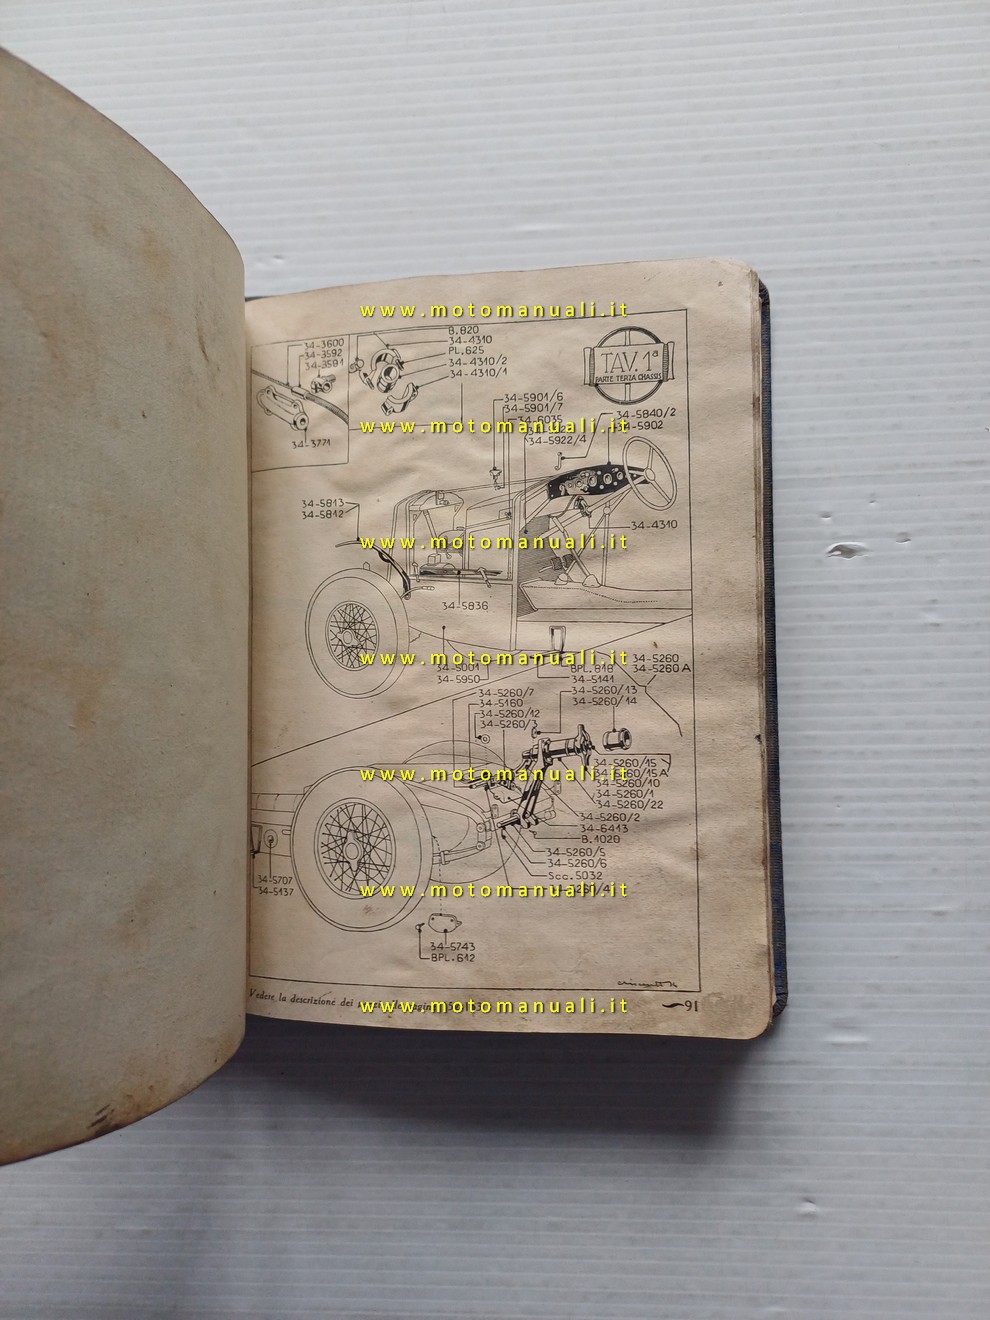 www.motomanuali.it
34-3600
34-3592
34-3591
34-3771
B.820
34-4310
PL.625
34-4310/2
34-4310/1
TAV. 1ª
PARTE TERZA CHASSIS
34-5901/6
34-5901/7
34-6035
34-5922/4
34-5840/2
34-5902
www.motomanuali.it
34-5813
34-5812
34-4310
www.motomanuali.it
34-5836
34-5001
34-5950
BPL.818
34-5141
34-5260
34-5260A
www.motomanuali.it
34-5260/7
34-5160
34-5260/12
34-5260/3
34-5260/13
34-5260/14
34-5260/15
34-5260/15A
34-5260/10
34-5260/1
34-5260/22
www.motomanuali.it
34-5260/2
34-6413
B.1020
34-5260/5
34-5260/6
Scc.5032
34-5707
34-5137
www.motomanuali.it
34-5743
BPL.612
Vedere la descrizione dei
www.motomanuali.it
91